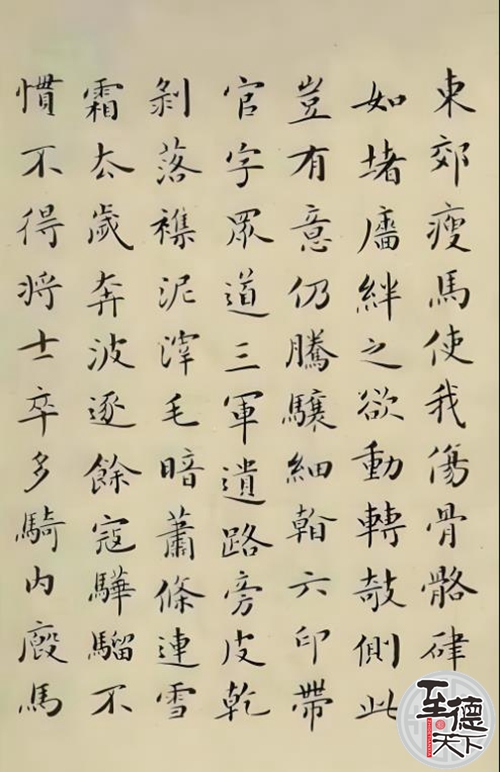 東郊瘦馬使我傷骨骼硉
如堵廧絆之欲動轉攲側此
豈有意仍騰驤細看六印帶
官字眾道三軍遺路旁皮乾
剝落襍泥滓毛暗蕭條連雪
霜去歲奔波逐餘寇驊騮不
慣不得將士卒多騎內廄馬
至德天下